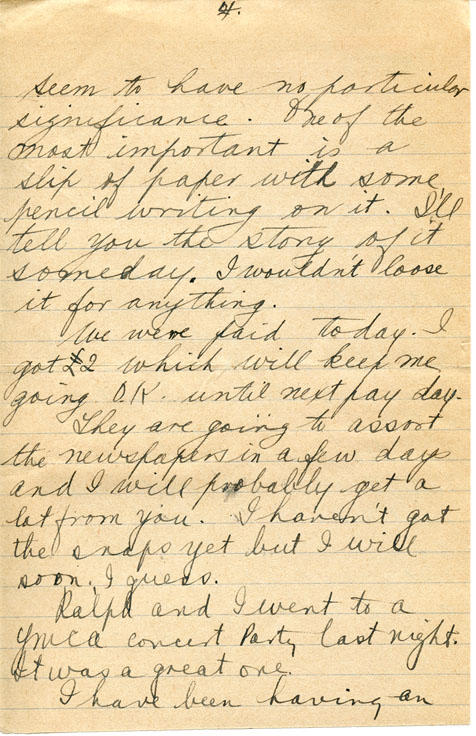 4.
seem to have no particular
significance. One of the
most important is a
slip of paper with some
pencil writing on it. I'll
tell you the story of it
someday. I wouldn't loose
it for anything.
We were paid today. I
got £2 which will keep me
going O.K. until next pay day.
They are going to assort
the newspapers in a few days
and I will probably get a
lot from you. I haven't got
the snaps yet but I will
soon, I guess.
Ralph and I went to a
YMCA concert Party last night.
It was a great one.
I have been having an